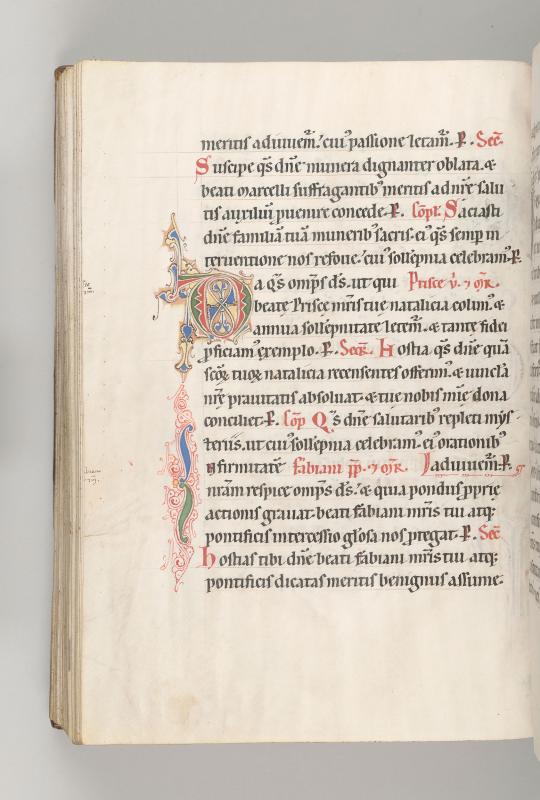 meritis adiuuem̄. eiuꝰ passione letam̄. P. Sec̄.
Suscipe qs̄ dn̄e munera dignanter oblata. &
beati Marcelli suffragantibꝰ meritis ad nr̄e salu
tis auxiliū ꝓuenire concede. P. Cōpl̄. Saciasti
dn̄e familiā tuā muneribꝰ sacris. eiꝰ qs̄ semp in
teruentione nos refoue. cuiꝰ sollēpnia celebram̄. P.
Da qs̄ omps̄ ds̄. ut qui Prisce v̄. & m̄r.
beate Prisce mr̄is tue natalicia colimꝰ. &
annua sollēpnitate letem̄. & tante fidei
ꝓficiamꝰ exemplo. P. Secr̄. Hostia qs̄ dn̄e quā
scōꝝ tuoꝝ natalicia recensentes offerimꝰ. & uincla
nr̄e prauitatis absoluat. & tue nobis mīe dona
conciliet. P. Cōp̄ Qs̄ dn̄e salutaribꝰ repleti mys
teriis. ut cuiꝰ sollēpnia celebramꝰ. eiꝰ orationibꝰ
Infirmitatē Fabiani pp̄. & m̄r. adiuuem̄. P.
nr̄am respice omps̄ ds̄. & quia pondus ꝓprie
actionis grauat. beati Fabiani mr̄is tui atq;
pontificis intercessio gl̄osa nos ꝓtegat. P. Sec̄
Hostias tibi dn̄e beati Fabiani mr̄is tui atq;
pontificis dicatas meritis benignus assume.